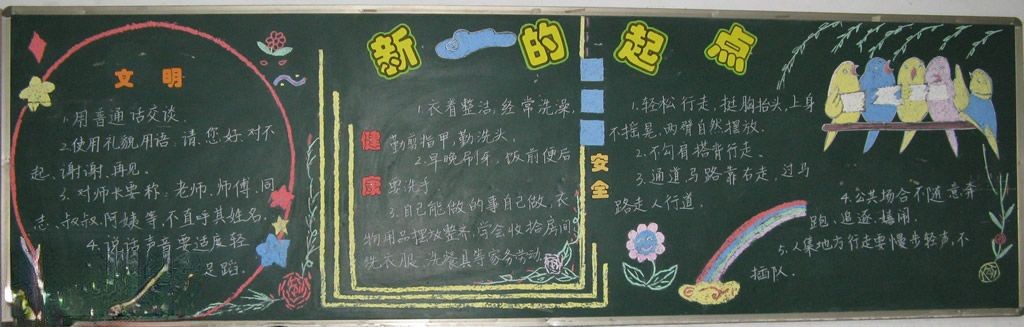 新的起点
文明
1.用普通话交谈.
2.使用礼貌用语,请.您好.对不
起.谢谢.再见.
3.对师长要称:老师.师傅.同
志.叔叔.阿姨等,不直呼其姓名.
4.说话声音要适度轻
健康
1.衣着整洁,经常洗澡,
勤剪指甲,勤洗头.
2.早晚刷牙,饭前便后
要洗手
3.自己能做的事自己做,衣
物用品摆放整齐,学会收拾房间
洗衣服.洗餐具等家务劳动.
安全
1.轻松行走,挺胸抬头,上身
不摇晃,两臂自然摆放.
2.不勾肩搭背行走.
3.通道马路靠右走,过马
路走人行道.
4.公共场合不随意奔
跑.追逐.
5.人集地方行走要慢步轻声,不
插队.